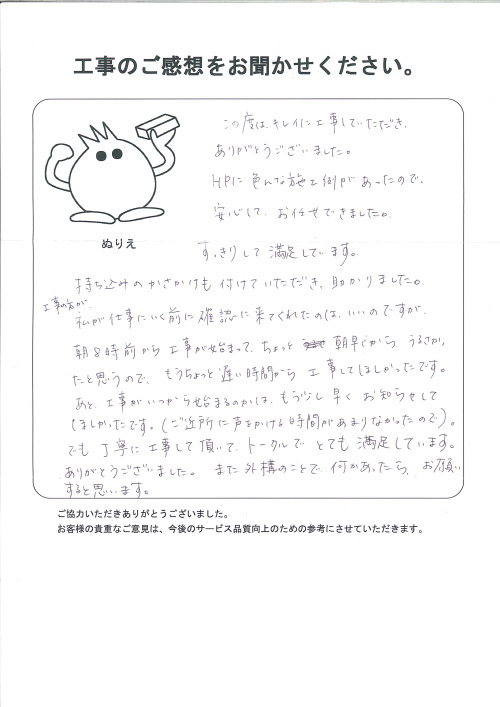 工事のご感想をお聞かせください。
この度は、キレイに工事していただき、
ありがとうございました。
HPに色んな施工例があったので、
安心して、お任せできました。
ぬりえ
すっきりして満足しています。
持ち込みのかさかけも付けていただき、助かりました。
工事の方が、
私が仕事にいく前に確認に来てくれたのは、いいのですが、
朝8時前から工事が始まって、ちょっと 朝早くから うるさかっ
たと思うので、もうちょっと遅い時間から工事してほしかったです。
あと、工事がいつから始まるのかは、もう少し早くお知らせして
ほしかったです。(ご近所に声をかける時間があまりなかったので)。
でも丁寧に工事して頂いて、トータルでとても満足しています。
ありがとうございました。また外構のことで何かあったら、お願い
すると思います。
ご協力いただきありがとうございました。
お客様の貴重なご意見は、今後のサービス品質向上のための参考にさせていただきます。